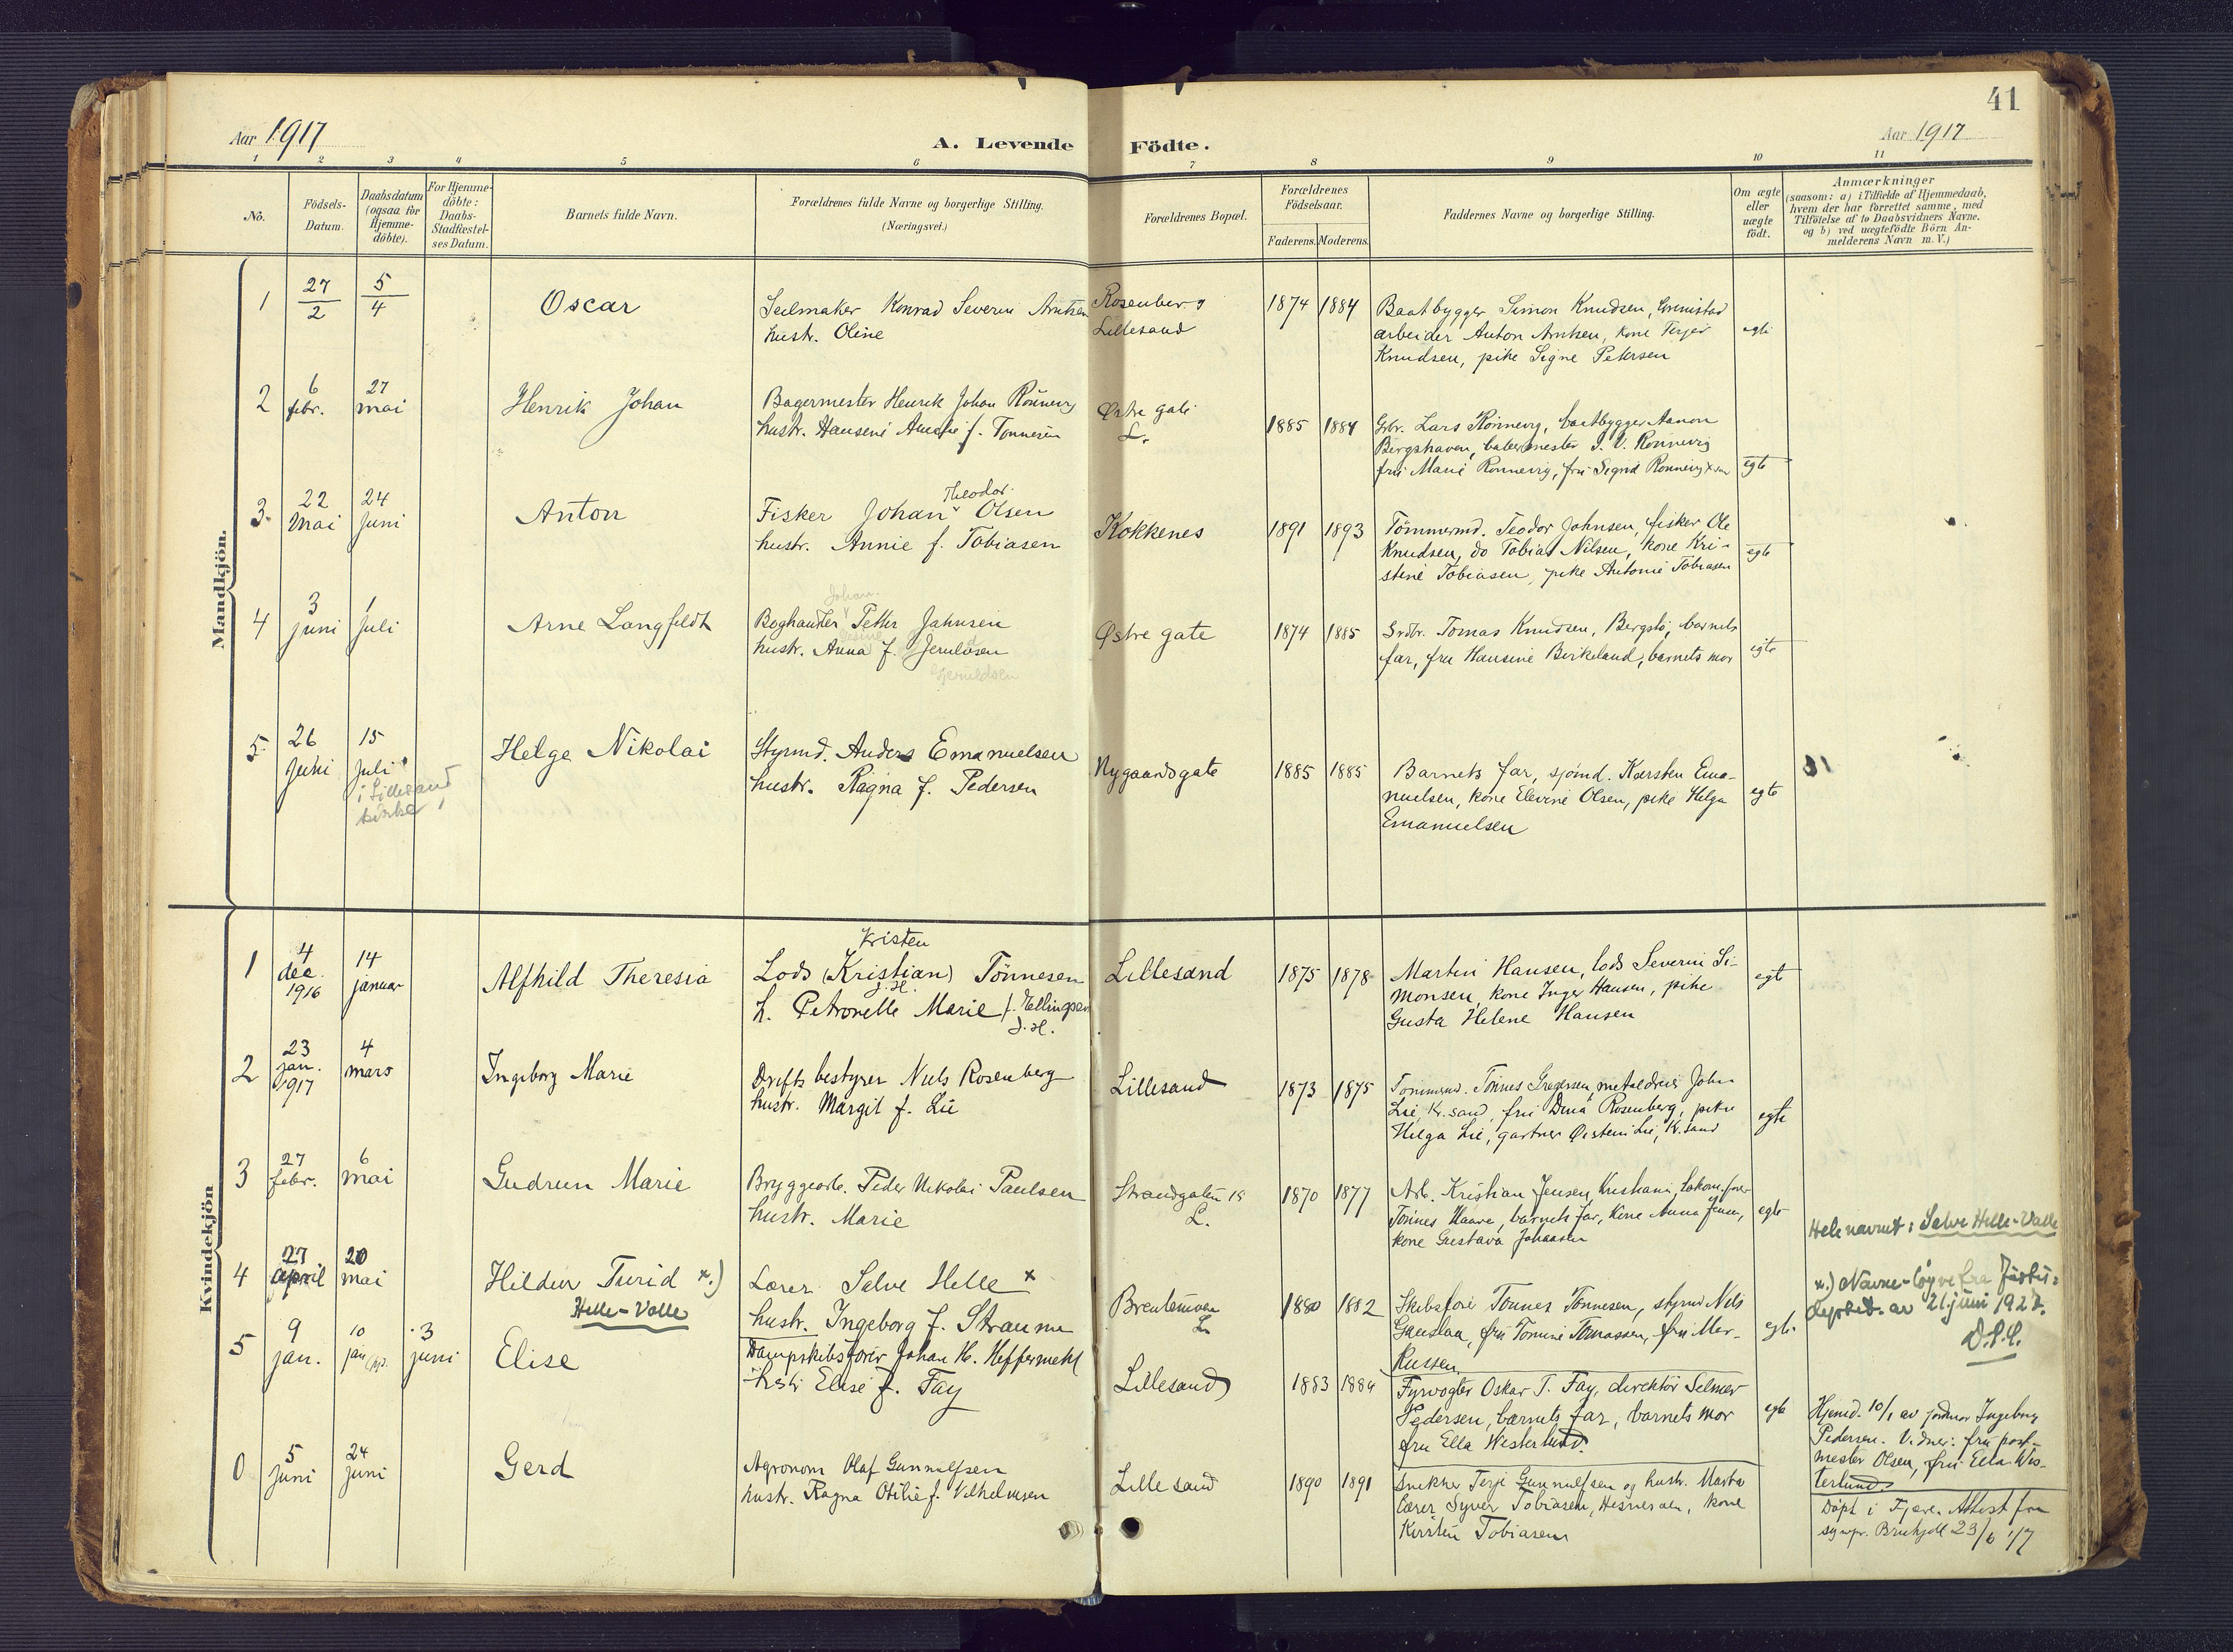 41
Aar 1917
A. Levende Födte.
Aar 1917
1 2 3 4 5 6 7 8 9 10 11
No.
Födsels-
Datum.
Daabsdatum
(ogsaa for
Hjemme-
döbte).
For Hjemme-
döbte:
Daabs-
Stadfæstel-
ses Datum.
Barnets fulde Navn.
Forældrenes fulde Navne og borgerlige Stilling.
(Næringsvei.)
Forældrenes Bopæl.
Forældrenes
Födselsaar.
Faderens. Moderens.
Faddernes Navne og borgerlige Stilling.
Om ægte
eller
uægte
födt.
Anmærkninger
(saasom: a) i Tilfælde af Hjemmedaab,
hvem der har forrettet samme, med
Tilföielse af to Daabsvidners Navne.
og b) ved uægtefödte Börn An-
melderens Navn m. V.)
Mandkjön.
1
27/2
5/4
Oscar
Seilmaker Konrad Severin Arntsen
hustr. Oline
Rosenberg
Lillesand
1874 1884
Baatbygger Simon Knudsen,
arbeider Anton Arntsen, kone Terjer
Knudsen, pike Signe Petersen
egte
2
6
febr.
27
mai
Henrik Johan
Bagermester Henrik Johan Rönnevig
hustr. Hansine f. Tonnesen
Østre gate
L.
1885 1884
Gbr. Lars Rönnevig, baatbygger Aanon
Bergshaven, bakermester J. V. Rönnevig
fru Marie Rönnevig, fru Signe Rönnevig
egte
3
22
mai
24
juni
Anton
Theodor
Fisker Johan Olsen
hustr. Annie f. Tobiasen
Kokkenes
1891 1893
Tömmermd. Teodor Johnsen, fisker Ole
Knudsen, do Tobias Nilsen, kone Kri-
stine Tobiasen, pike Antonie Tobiasen
egte
4
3
juni
1
juli
Arne Langfeldt
Johan
Boghandler Petter Jahnsen
hustr. Anna f. Jerulosen
Gjeruldsen
Østre gate
1874 1885
Grdbr. Tomas Knudsen, Bergstö, barnets
far, fru Hansine Birkeland, barnets mor
egte
5
26
juni
15
juli
i Lillesand
kirke
Helge Nikolai
Styrmd. Anders Emanuelsen
hustr. Ragna f. Pedersen
Nygaardsgate
1885 1885
Barnets far, sjömd. Karsten Ema-
nuelsen, kone Elevine Olsen, pike Helga
Emanuelsen
egte
Kvindekjön
1
4
dec.
1916
14
januar
Alfhild Theresia
Kristen
Lods (Kristian) Tönnesen
J.H.
h. Petronelle Marie f. Ellingsen
J.H.
Lillesand
1875 1878
Martin Hansen, lods Severin Si-
monsen, kone Inger Hansen, pike
Gusta Helene Hansen
egt
2
23
jan.
1917
4
mars
Ingeborg Marie
Driftsbestyrer Niels Rosenberg
hustr. Margit f. Lie
Lillesand
1873 1875
Tommermd. Tönnes Gregersen, John
Lie, Kr.sand, fru Dina Rosenberg, pike
Helga Lie, gartner Øistein Lie, Kr.sand
egte
3
27
febr.
6
mai
Gudrun Marie
Bryggearb. Peder Nikolai Paulsen
hustr. Marie
Strandgaten 18
L.
1870 1877
Arb. Kristian Jensen,
Tönnes Haave, barnets far, kone Anna Jensen,
kone Gustava Johansen
egte
Hele navnet: Salve Helle-Valle
4
27
april
20
mai
Hildur Turid x.)
Helle-Valle
Lærer Salve Helle x
hustr. Ingeborg f. Straume
L.
1880 1882
Skibsförer Tönnes Tönnesen, styrmd Nils
Gauslaa, fru Tomine Tomassen, fru Mar-
Russen
egte
x.) Navne-löyve fra Justis-
deptet. av 21. juni 1927.
5
9
jan.
10
jan
3
juni
Elise
Dampskibsförer Johan H. Heffermehl
hustr Elise f. Fay
Lillesand
1883 1884
Fyrvogter Oskar T. Fay, direktör Selmer
Pedersen, barnets far, barnets mor
fru Ella Westerlund.
egte
Hjemd. 10/1 av jordmor Ingeborg
Pedersen. Vidner: fru post-
mester Olsen, fru Ella Wes-
terlund
0
5
juni
24
juni
Gerd
Agronom Olaf Gunnulfsen
hustr. Ragna Otilie f. Vilhelmsen
Lillesand
1890 1891
Snekker Terje Gunnulfsen og hustr. Marta
Lærer Syver Tobiasen, Hesnesöen, kone
Kirstin Tobiasen
Döpt i Fjære. Attest fra
sognepr. 23/6 17